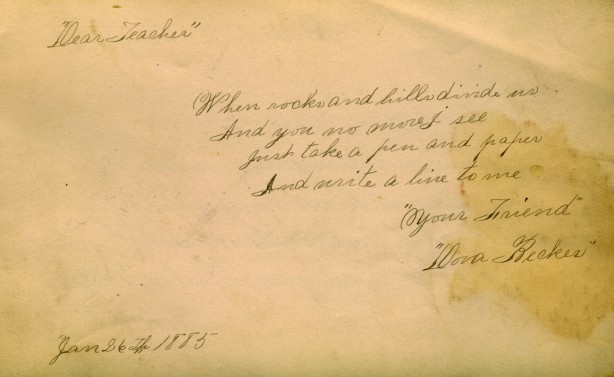 "Dear Teacher"
When rocks and hills divide us
And you no more I see
Just take a pen and paper
And write a line to me
"Your Friend"
"Dora Becker"
"Jan 26th 1885